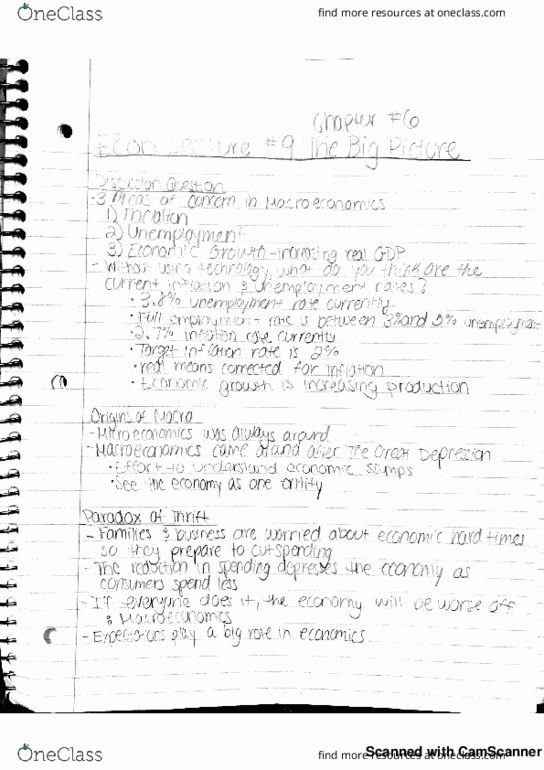 OneClass
find more resources at oneclass.com
Chapter #6
Econ Lecture #9 The Big Picture
Discussion Question
-3 Areas of concern in Macroeconomics
1) Inflation
2) Unemployment
3) Economic Growth -increasing real GDP
- Without using technology, what do you think are the
current inflation & unemployment rates?
• 3.8% unemployment rate currently
• Full employment rate is between 3% and 5% unemployment
• 2.7% inflation rate currently
• Target inflation rate is 2%
• real means corrected for inflation
• Economic growth is increasing production
Origins of Macro
-Microeconomics was always around
-Macroeconomics came around after The Great Depression
• Effort to understand economic slumps
• See the economy as one entity
Paradox of Thrift
- Families & business are worried about economic hard times
so they prepare to cut spending
- The reduction in spending depresses the economy as
consumers spend less
- If everyone does it, the economy will be worse off
& Macroeconomics
- Expectations play a big role in economics
OneClass
find more resources at oneclass.com
Scanned with CamScanner